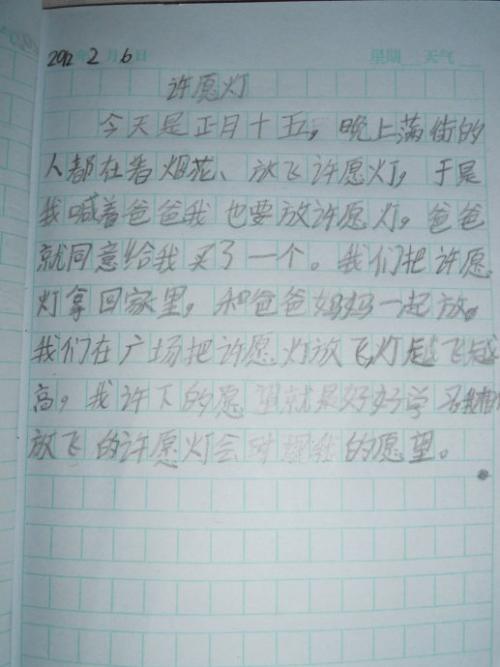 2012年2月6日 星期 天气
许愿灯
今天是正月十五，晚上满街的
人都在看烟花、放飞许愿灯，于是
我喊着爸爸我也要放许愿灯，爸爸
就同意给我买了一个。我们把许愿
灯拿回家里，和爸爸妈妈一起放。
我们在广场把许愿灯放飞，灯越飞越
高，我许下的愿望就是好好学习，我相信
放飞的许愿灯会 我的愿望。